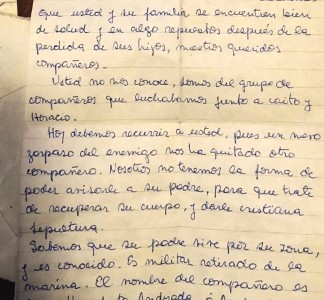 que usted y su familia se encuentren bien
de salud y en algo repuestos después de la
perdida de sus hijos, nuestros queridos
compañeros.
Usted no nos conoce, somos del grupo de
compañeros que luchabamos junto a caito y
Horacio.
Hoy debemos recurrir a usted, pues un nuevo
zarpaso del enemigo nos ha quitado otro
compañero. Nosotros no tenemos la forma de
poder avisarle a su padre, para que trate
de recuperar su cuerpo, y darle cristiana
sepultura.
Sabemos que su padre vive por su zona,
y es conocido. Es militar retirado de la
marina. El nombre del compañero es